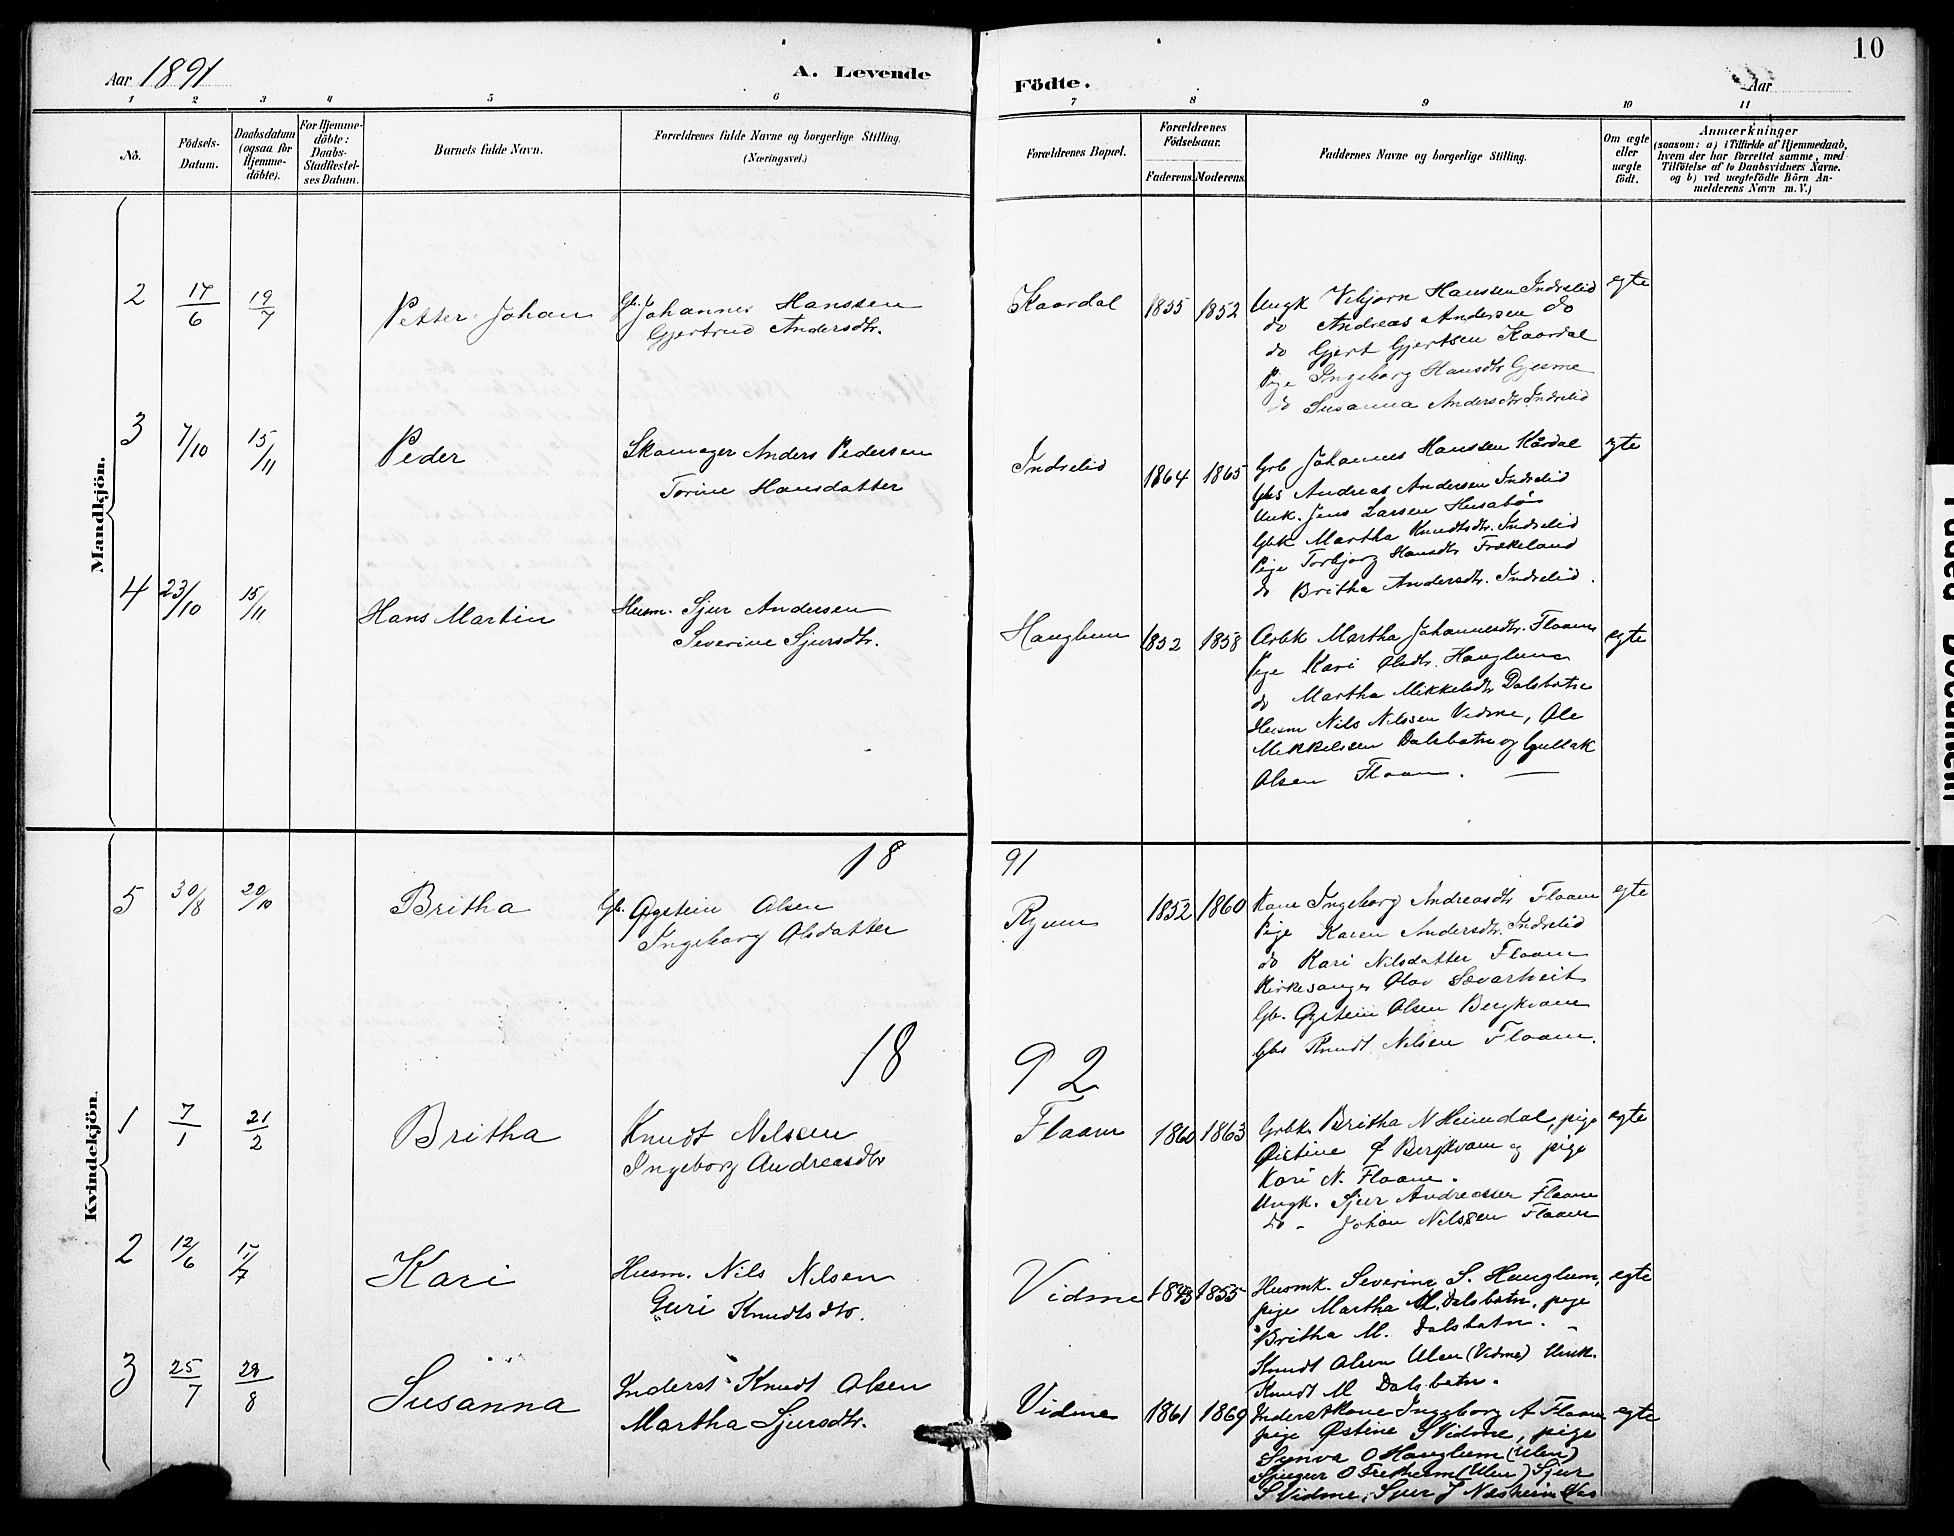 Aar 1891
A. Levende
Födte.
Aar
10
1 2 3 4 5 6 7 8 9 10 11
No.
Födsels-
Datum.
Daabsdatum
(ogsaa for
Hjemme-
döbte).
For Hjemme-
döbte:
Daabs-
Stadfæstel-
ses Datum.
Barnets fulde Navn.
Forældrenes fulde Navne og borgerlige Stilling.
(Næringsvei.)
Forældrenes Bopæl.
Forældrenes
Födselsaar.
Faderens. Moderens.
Faddernes Navne og borgerlige Stilling.
Om ægte
eller
uægte
födt.
Anmærkninger
(saasom: a) i Tilfælde af Hjemmedaab,
hvem der har forrettet samme, med
Tilföielse af to Daabsvidners Navne.
og b) ved uægtefödte Börn An-
melderens Navn m. V.)
Mandkjön.
2 17/6 19/7 Petter Johan
Gb. Johannes Hanssen
Gjertrud Andersdtr.
Kaardal 1855 1852
Ungk Vibjørn Hanssen Indrelid
do Andreas Andersen do
do Gjert Gjertsen Kaardal
Pige Ingeborg Hansdtr Gjesme
do Susanna Andersdtr Indrelid
egte
3 7/10 15/11 Peder
Skomager Anders Pedersen
Torine Hansdatter
Indrelid 1864 1865
Grb Johannes Hanssen Kårdal
Gbs Andreas Andersen Indrelid
Unk. Jens Larsen Husabø
Gbk Martha Knudtsdtr. Indrelid
Pige Torbjørg Hansdtr Frækeland
do Britha Andersdtr. Indrelid.
egte
4 23/10 15/11 Hans Martin
Husm. Sjur Andersen
Severine Sjursdtr.
Hauglum 1852 1858
Arbk Martha Johannesdtr. Flaam
Pige Kari Olsdtr. Hauglum
do Martha Mikkelsdtr Dalsbotn
Husm Nils Nilssen Vidme, Ole
Mikkelssen Dalsbotn og Gullak
Olsen Flaam.
egte
Kvindekjön.
18 91
5 30/8 20/10 Britha
Gb. Øystein Olsen
Ingeborg Olsdatter
Ryum 1852 1860
Kone Ingeborg Andreasdtr Flaam
Pige Karen Andersdtr. Indrelid
do Kari Nilsdatter Flaam
Kirkesanger Olav Sævartveit
Gb. Øystein Olsen Bergkvam
Gbs Knudt Nilsen Flaam.
egte
18 92
1 7/1 21/2 Britha
Knudt Nilssen
Ingeborg Andreasdtr
Flaam 1860 1863
Grbk. Britha N Heimdal, pige
Øistine Ø Bergkvam og pige
Kari N. Flaam.
Ungk. Sjur Andreassen Flaam
do - Johan Nilssen Flaam
egte
2 12/6 17/7 Kari
Husm. Nils Nilsen
Guri Knudtsdtr.
Vidme 1843 1855
Husmk. Severine S. Hauglum,
pige Martha M. Dalsbotn, pige
Britha M. Dalsbotn.
Knudt Olsen Ulen (Vidme) Unk.
Knudt M Dalsbotn.
egte
3 25/7 28/8 Susanna
Inderst Knudt Olsen
Martha Sjursdtr.
Vidme 1861 1869
Inderstkone Ingeborg A Flaam
pige Østine S Vidme, pige
Synva O Hauglum (Ulen)
O Fretheim (Ulen) Sjur
S Vidme, Sjur J Næsheim
egte